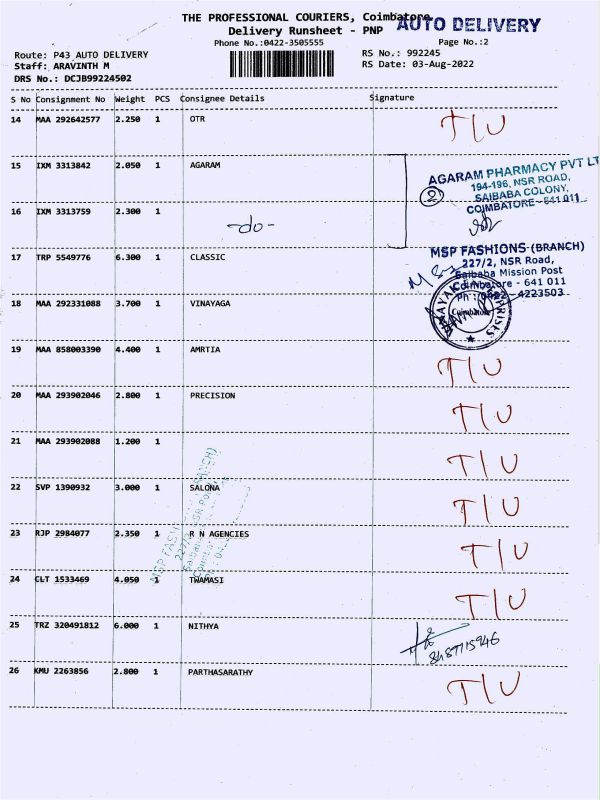 THE PROFESSIONAL COURIERS, Coimbatore
AUTO DELIVERY
Delivery Runsheet - PNP
Phone No.:0422-3505555
Page No.:2
Route: P43 AUTO DELIVERY
RS No.: 992245
Staff: ARAVINTH M
RS Date: 03-Aug-2022
DRS No.: DCJB99224502
S No Consignment No Weight PCS Consignee Details Signature
14 MAA 292642577 2.250 1 OTR T/U
15 IXM 3313842 2.050 1 AGARAM
AGARAM PHARMACY PVT LT
194-196, NSR ROAD,
SAIBABA COLONY,
COIMBATORE - 641 011
2
16 IXM 3313759 2.300 1 -do-
17 TRP 5549776 6.300 1 CLASSIC
MSP FASHIONS (BRANCH)
227/2, NSR Road,
Saibaba Mission Post
Coimbatore - 641 011
Ph : 0422 - 4223503
18 MAA 292331088 3.700 1 VINAYAGA
Coimbatore
19 MAA 858003390 4.400 1 AMRTIA T/U
20 MAA 293902046 2.800 1 PRECISION T/U
21 MAA 293902088 1.200 1 T/U
22 SVP 1390932 3.000 1 SALONA T/U
23 RJP 2984077 2.350 1 R N AGENCIES T/U
24 CLT 1533469 4.050 1 TWAMASI T/U
25 TRZ 320491812 6.000 1 NITHYA
26 KMU 2263856 2.800 1 PARTHASARATHY T/U